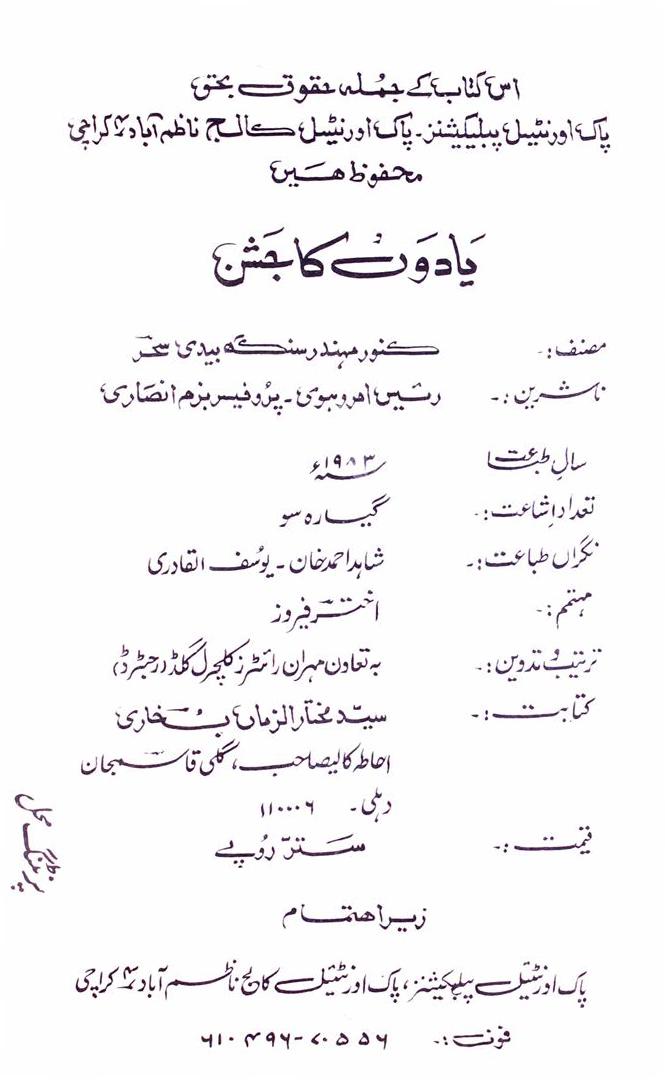 اس کتاب کے جملہ حقوق بحق
پاک اورنٹیل پبلیکیشنز۔ پاک اورنٹیل کالج ناظم آباد ۴ کراچی
محفوظ ھیں
یَادوَں کا جَشن
مصنف:۔ کنور مہندر سنگھ بیدی سحر
ناشرین:۔ رئیس امروہوی۔ پروفیسر بزم انصاری
سالِ طباعت ۱۹۸۳ء
تعداد اشاعت:۔ گیارہ سو
نگراں طباعت:۔ شاہد احمد خان۔ یوسُف القادری
مہتمم:۔ اختر فیروز
ترتیب و تدوین:۔ بہ تعاون مہران رائٹرز کلچرل گلڈ (رجسٹرڈ)
کتابت:۔ سیّد مختار الزماں بخاری
احاطہ کالے صاحب، گلی قاسم جان
دہلی۔ ۱۱۰۰۰۶
قیمت:۔ ستّر رُوپے
زیر اھتمام
پاک اورنٹیل پبلیکیشنز، پاک اورنٹیل کالج ناظم آباد ۴ کراچی
فون:۔ ۶۱۰۴۹۶-۷۰۵۵۶
پرنٹنگ محل